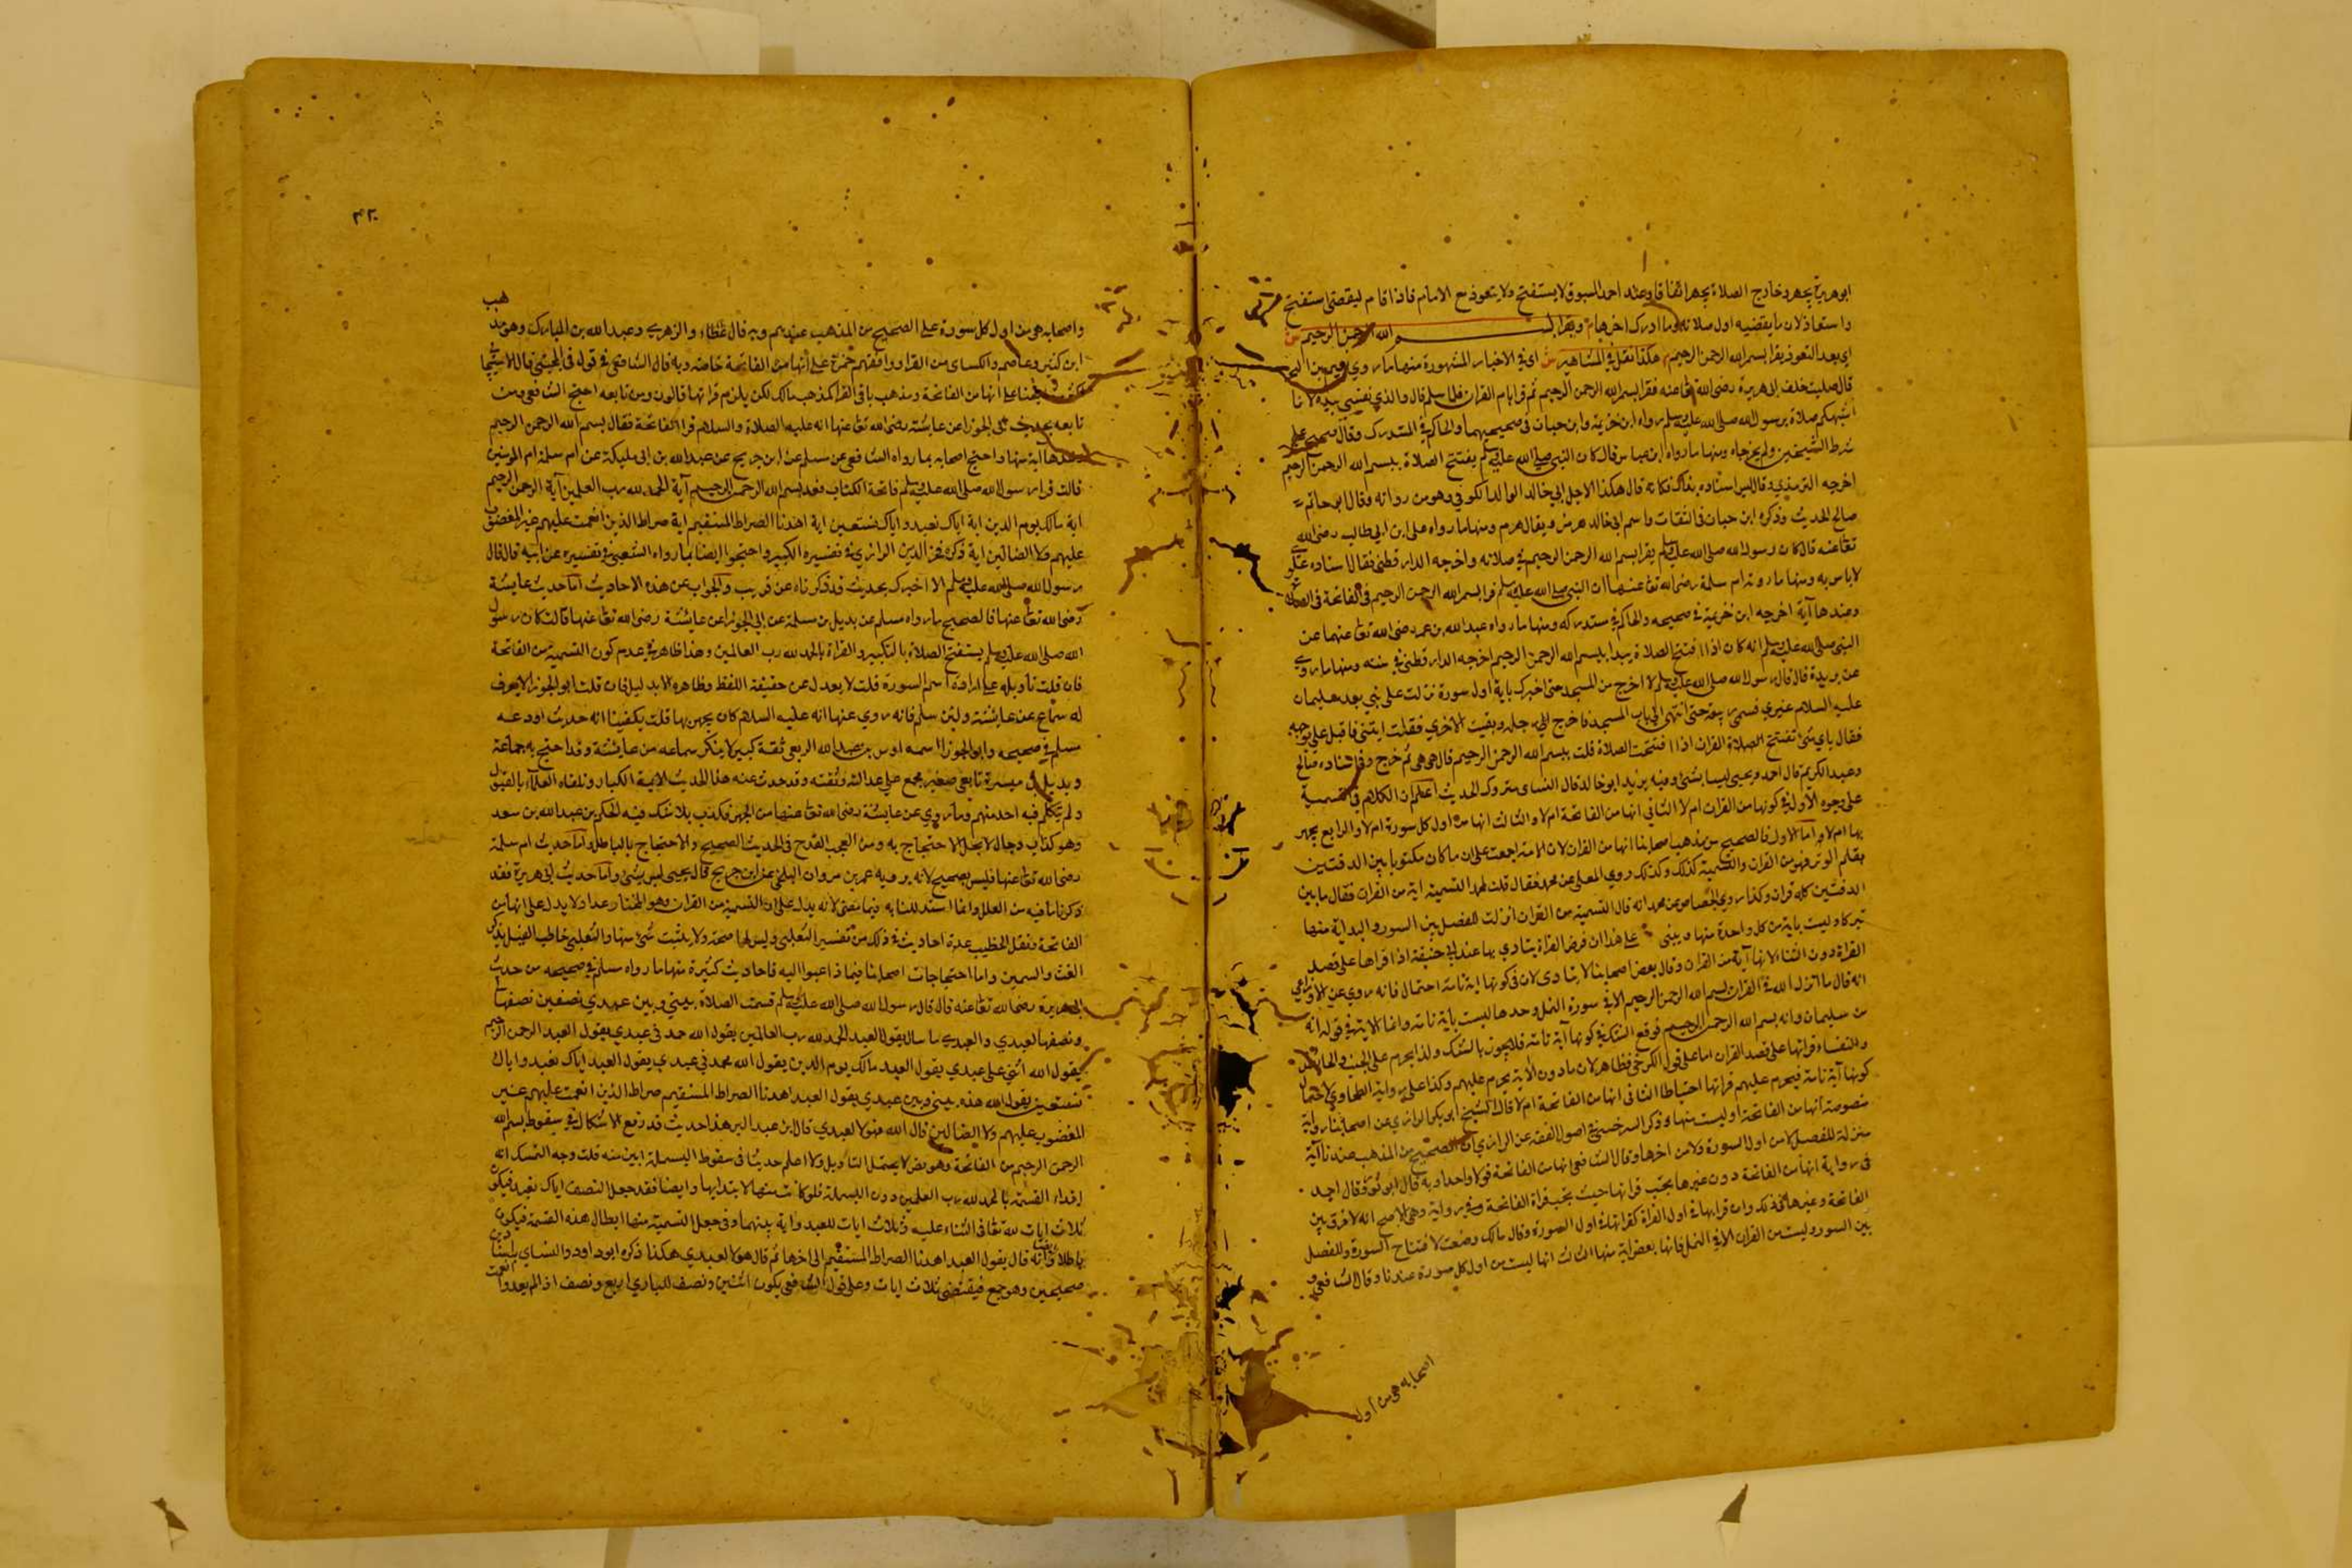 ابو هريرة يجهر وخارج الصلاة يجهر اتفاقا وعند احمد المسبوق لا يستفتح ولا يتعوذ مع الامام فاذا قام ليقضى استفتح
واستعاذ لان ما يقضيه اول صلاته وما ادرك اخرها م ويقرا بسم الله الرحمن الرحيم ش
اى بعد التعوذ يقرا بسم الله الرحمن الرحيم م هكذا نقل في المشاهير ش اى في الاخبار المشهورة منها ما روي نعيم بن
قال صليت خلف ابى هريرة رضى الله تعا عنه فقرا بسم الله الرحمن الرحيم ثم قرا بام القران فلما سلم قال والذي نفسي بيده لانا
اشبهكم صلاة برسول الله صلى الله عليه وسلم رواه ابن خزيمة وابن حبان فى صحيحيهما والحاكم في المستدرك وقال صحيح على
شرط الشيخين ولم يخرجاه ومنها ما رواه ابن عباس قال كان النبى صلى الله عليه وسلم يفتتح الصلاة ببسم الله الرحمن الرحيم
اخرجه الترمذي وقال ليس اسناده بذاك فكانه قال هكذا لاجل ابي خالد الوالد الكوفي وهو من رواته وقال ابو حاتم
صالح الحديث وذكره ابن حبان فى الثقات واسم ابى خالد هرمز ويقال هرم ومنها ما رواه على ابن ابى طالب رضى الله
تعا عنه قال كان رسول الله صلى الله عليه وسلم يقرا بسم الله الرحمن الرحيم في صلاته واخرجه الدارقطنى فقال اسناده علوي
لا باس به ومنها ما روته ام سلمة رضى الله تعا عنها ان النبى صلى الله عليه وسلم قرا بسم الله الرحمن الرحيم فى الفاتحة فى الصلاة
وعدها آية اخرجه ابن خزيمة في صحيحه والحاكم في مستدركه ومنها ما رواه عبد الله بن عمر رضى الله تعا عنهما عن
النبى صلى الله عليه وسلم انه كان اذا افتتح الصلاة يبدا ببسم الله الرحمن الرحيم اخرجه الدارقطنى في سننه ومنها ما روي
عن بريدة قال قال رسول الله صلى الله عليه وسلم لا اخرج من المسجد حتى اخبرك باية او سورة نزلت على نبي بعد سليمان
عليه السلام غيري فمشى وتبعته حتى انتهى الى باب المسجد فاخرج احدى رجله وبقيت الاخري فقلت ايتنى فاقبل على بوجهه
فقال باي شئ تفتتح الصلاة القران اذا افتتحت الصلاة قلت ببسم الله الرحمن الرحيم قال هى هى ثم خرج وفى اسناده صالح
وعبد الكريم قال احمد ويحيى ليسا بشئ وفيه يزيد ابو خالد قال النساى متروك الحديث اعلم ان الكلام في التسمية
على وجوه الاول في كونها من القران ام لا الثانى انها من الفاتحة ام لا والثالث انها من اول كل سورة ام لا والرابع يجهر
بها ام لا واما الاول فالصحيح من مذهب اصحابنا انها من القران لان الامة اجمعت على ان ما كان مكتوبا بين الدفتين
بقلم الوحى فهو من القران والتسمية كذلك وكذلك روي المعلى عن محمد فقال قلت لمحمد التسمية اية من القران فقال ما بين
الدفتين كله قران وكذا روي الجصاص عن محمد انه قال التسمية من القران انزلت للفصل بين السور والبداية منها
تبركا وليست باية من كل واحدة منها ويبنى على هذا ان فرض القراة يتادي بها عند ابى حنيفة اذا قراها على قصد
القراة دون الثناء لانها آية من القران وقال بعض اصحابنا لا يتادى لان فى كونها اية تامة احتمال فانه روي عن الاوزاعي
انه قال ما انزل الله في القران بسم الله الرحمن الرحيم الا في سورة النمل وحدها ليست باية تامة وانما الاية في قوله انه
من سليمان وانه بسم الله الرحمن الرحيم فوقع الشك في كونها آية تامة فلا يجوز بالشك ولذا يحرم على الجنب والحائض
والنفساء قراتها على قصد القران اما على قول الكرخى فظاهر لان ما دون الاية يحرم عليهم وكذا على رواية الطحاوي لاحتمال
كونها آية تامة فيحرم عليهم قراتها احتياطا الثانى انها من الفاتحة ام لا قال الشيخ ابو بكر الرازي عن اصحابنا رواية
منصوصة انها من الفاتحة اوليست منها وذكر السرخسي في اصول الفقه عن الرازي ان الصحيح من المذهب عندنا آية
منزلة للفصل لا من اول السورة ولا من اخرها وقال الشافعى انها من الفاتحة قولا واحدا وبه قال ابو ثور وقال احمد
فى رواية انها من الفاتحة دون غيرها يجب قراتها حيث يجب قراة الفاتحة وفي رواية وهي الاصح انه لا فرق بين
الفاتحة وغيرها في ذلك وان قرابها في اول القراة كقراتها في اول السورة وقال مالك وضعت لافتتاح السورة وللفصل
بين السور وليست من القران الا في النمل فانها بعض اية منها الثالث انها ليست من اول كل سورة عندنا وقال الشافعى و
اصحابه هى من اول
٤٢٠
واصحابه هو من اول كل سورة على الصحيح من المذهب عندهم وبه قال عطاء والزهري وعبد الله بن المبارك وهو مذهب
ابن كثير وعاصم والكساى من القرا ووافقهم حمزة على انها من الفاتحة خاصة وبه قال الشافعى في قوله فى المجتبى قال الاسبيجابي
اكثر مشايخنا على انها من الفاتحة ومذهب باقى القرا كمذهب مالك لكن يلزم قراتها قالون ومن تابعه احتج الشافعى ومن
تابعه بحديث ابى الجوزا عن عايشة رضى الله تعا عنها انه عليه الصلاة والسلام قرا الفاتحة فقال بسم الله الرحمن الرحيم
وعدها اية منها واحتج اصحابه بما رواه الشافعى عن مسلم عن ابن جريج عن عبد الله بن ابى مليكة عن ام سلمة ام المومنين
قالت قرا رسول الله صلى الله عليه وسلم فاتحة الكتاب فعد بسم الله الرحمن الرحيم آية الحمد لله رب العلمين آية الرحمن الرحيم
اية مالك يوم الدين اية اياك نعبد واياك نستعين اية اهدنا الصراط المستقيم اية صراط الذين انعمت عليهم غير المغضوب
عليهم ولا الضالين اية ذكره فخر الدين الرازي في تفسيره الكبير واحتجوا ايضا بما رواه الثعلبى في تفسيره عن ابيه قال قال
رسول الله صلى الله عليه وسلم الا اخبرك بحديث قد ذكرناه عن قريب والجواب عن هذه الاحاديث اما حديث عايشة
رضى الله تعا عنها فالصحيح ما رواه مسلم عن بديل بن سلمة عن ابى الجوزا عن عائشة رضى الله تعا عنها قالت كان رسول
الله صلى الله عليه وسلم يستفتح الصلاة بالتكبير والقراة بالحمد لله رب العالمين وهذا ظاهر في عدم كون التسمية من الفاتحة
فان قلت تاويله على ارادة اسم السورة قلت لا يعدل عن حقيقة اللفظ وظاهره الا بدليل فان قلت ابو الجوزا لا يعرف
له سماع عن عايشة ولئن سلم فانه روي عنها انه عليه السلام كان يجهر بها قلت يكفينا انه حديث اودعه
مسلم في صحيحه وابو الجوزا اسمه اوس بن عبد الله الربعي ثقة كبير لا ينكر سماعه من عايشة وقد احتج به جماعة
وبديل بن ميسرة تابعى صغير مجمع على عدالته وثقته وقد حدث عنه هذا الحديث الايمة الكبار وتلقاه العلماء بالقبول
ولم يتكلم فيه احد منهم وما روي عن عايشة رضى الله تعا عنها من الجهر فكذب بلا شك فيه الحكم بن عبد الله بن سعد
وهو كذاب دجال لا يحل الاحتجاج به ومن العجب القدح فى الحديث الصحيح والاحتجاج بالباطل واما حديث ام سلمة
رضى الله تعا عنها فليس بصحيح لانه يرويه عمر بن مروان البلخى عن ابن جريج قال يحيى ليس بشئ واما حديث ابى هريرة فقد
ذكرنا ما فيه من العلل وانما استدللنا به فيما مضى لانه يدل على ان التسمية من القران وهو المختار عدا ولا يدل على انها من
الفاتحة فنقل الخطيب عدة احاديث في ذلك من تفسير الثعلبى وليس لها صحة ولا يثبت شئ منها والثعلبى حاطب الليل يذكر
الغث والسمين واما احتجاجات اصحابنا فيما ذهبوا اليه فاحاديث كثيرة منها ما رواه مسلم في صحيحه من حديث
ابى هريرة رضى الله تعا عنه قال قال رسول الله صلى الله عليه وسلم قسمت الصلاة بينى وبين عبدي نصفين نصفها لي
ونصفها لعبدي ولعبدي ما سال يقول العبد الحمد لله رب العالمين يقول الله حمدنى عبدي يقول العبد الرحمن الرحيم
يقول الله اثنى على عبدي يقول العبد مالك يوم الدين يقول الله مجدني عبدي يقول العبد اياك نعبد واياك
نستعين يقول الله هذه بيني وبين عبدي يقول العبد اهدنا الصراط المستقيم صراط الذين انعمت عليهم غير
المغضوب عليهم ولا الضالين قال الله هولا لعبدي قال ابن عبد البر هذا حديث قد رفع الاشكال في سقوط بسم الله
الرحمن الرحيم من الفاتحة وهو نص لا يحتمل التاويل ولا اعلم حديثا فى سقوط البسملة ابين منه قلت وجه التمسك انه
ابتداء القسمة بالحمد لله رب العلمين دون البسملة فلو كانت منها لابتدا بها وايضا فقد جعل النصف اياك نعبد فيكون
ثلاث ايات لله تعا فى الثناء عليه وثلاث ايات للعبد واية بينهما وفى جعل التسمية منها ابطال هذه القسمة فيكون
باطلا وايضا فانه قال يقول العبد اهدنا الصراط المستقيم الى اخرها ثم قال هولا لعبدي هكذا ذكره ابو داود والنساي باسنادين
صحيحين وهو جمع فيقتضى ثلاث ايات وعلى قول الشافعى يكون اثنين ونصف للباري اربع ونصف اذ لم يعدوا انعمت